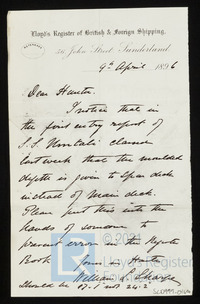 Lloyd's Register of British & Foreign Shipping,
56 John Street Sunderland
9th April 1896
Dear Hunter
I notice that in
the first entry report of
S.S. classed
last week that the moulded
depth is given to Spar deck
instead of Main deck.
Please put this into the
hands of someone to
prevent error in the Register
Book
Yours
William
should be 17. not 24.2